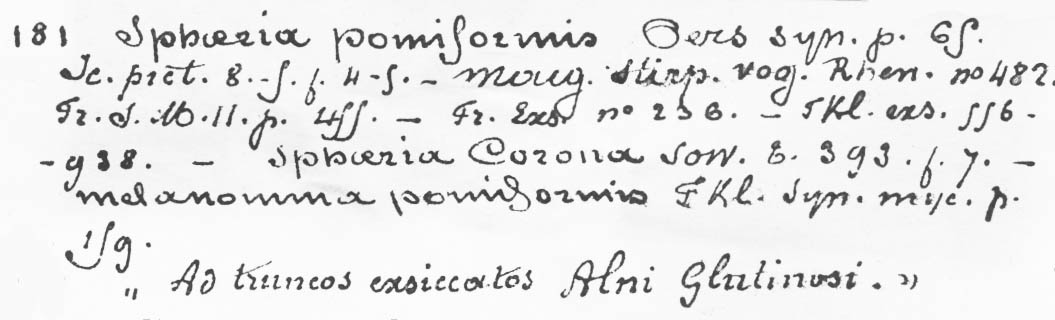 181 Sphæria pomiformis Pers syn. p. 65.
Ic. pict. 8. 5. f. 4-5. - Moug. stirp. vog. Rhen. no 482.
Fr. S. M. II. p. 455. - Fr. Exs. no 236. - Fkl. exs. 556-
-938. - Sphæria Corona Sow. t. 393. f. 7. -
melanomma pomiformis Fkl. Syn. myc. p.
159.
„ Ad truncos exsiccatos Alni Glutinosi. "